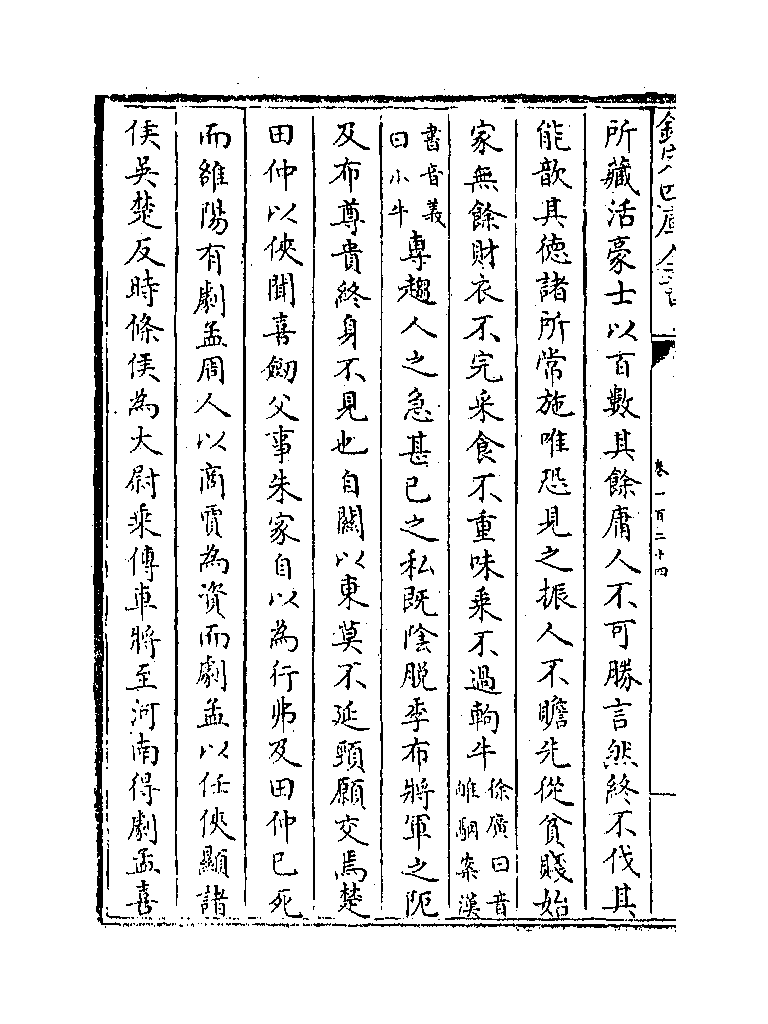 欽定四庫全書
卷一百二十四
所藏活豪士以百數其餘庸人不可勝言然終不伐其
能歆其德諸所常施唯恐見之振人不贍先從貧賤始
家無餘財衣不完采食不重味乘不過軥牛徐廣曰音
雊駰案漢
書音義
曰小牛專趨人之急甚己之私既陰脱季布將軍之阨
及布尊貴終身不見也自關以東莫不延頸願交焉楚
田仲以俠聞喜劒父事朱家自以為行弗及田仲已死
而雒陽有劇孟周人以商賈為資而劇孟以任俠顯諸
侯吳楚反時條侯為大尉乘傳車將至河南得劇孟喜